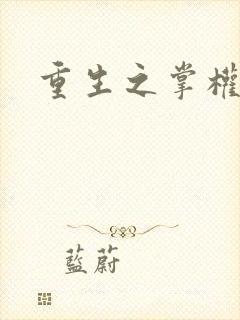 重生之掌權
藍蔚